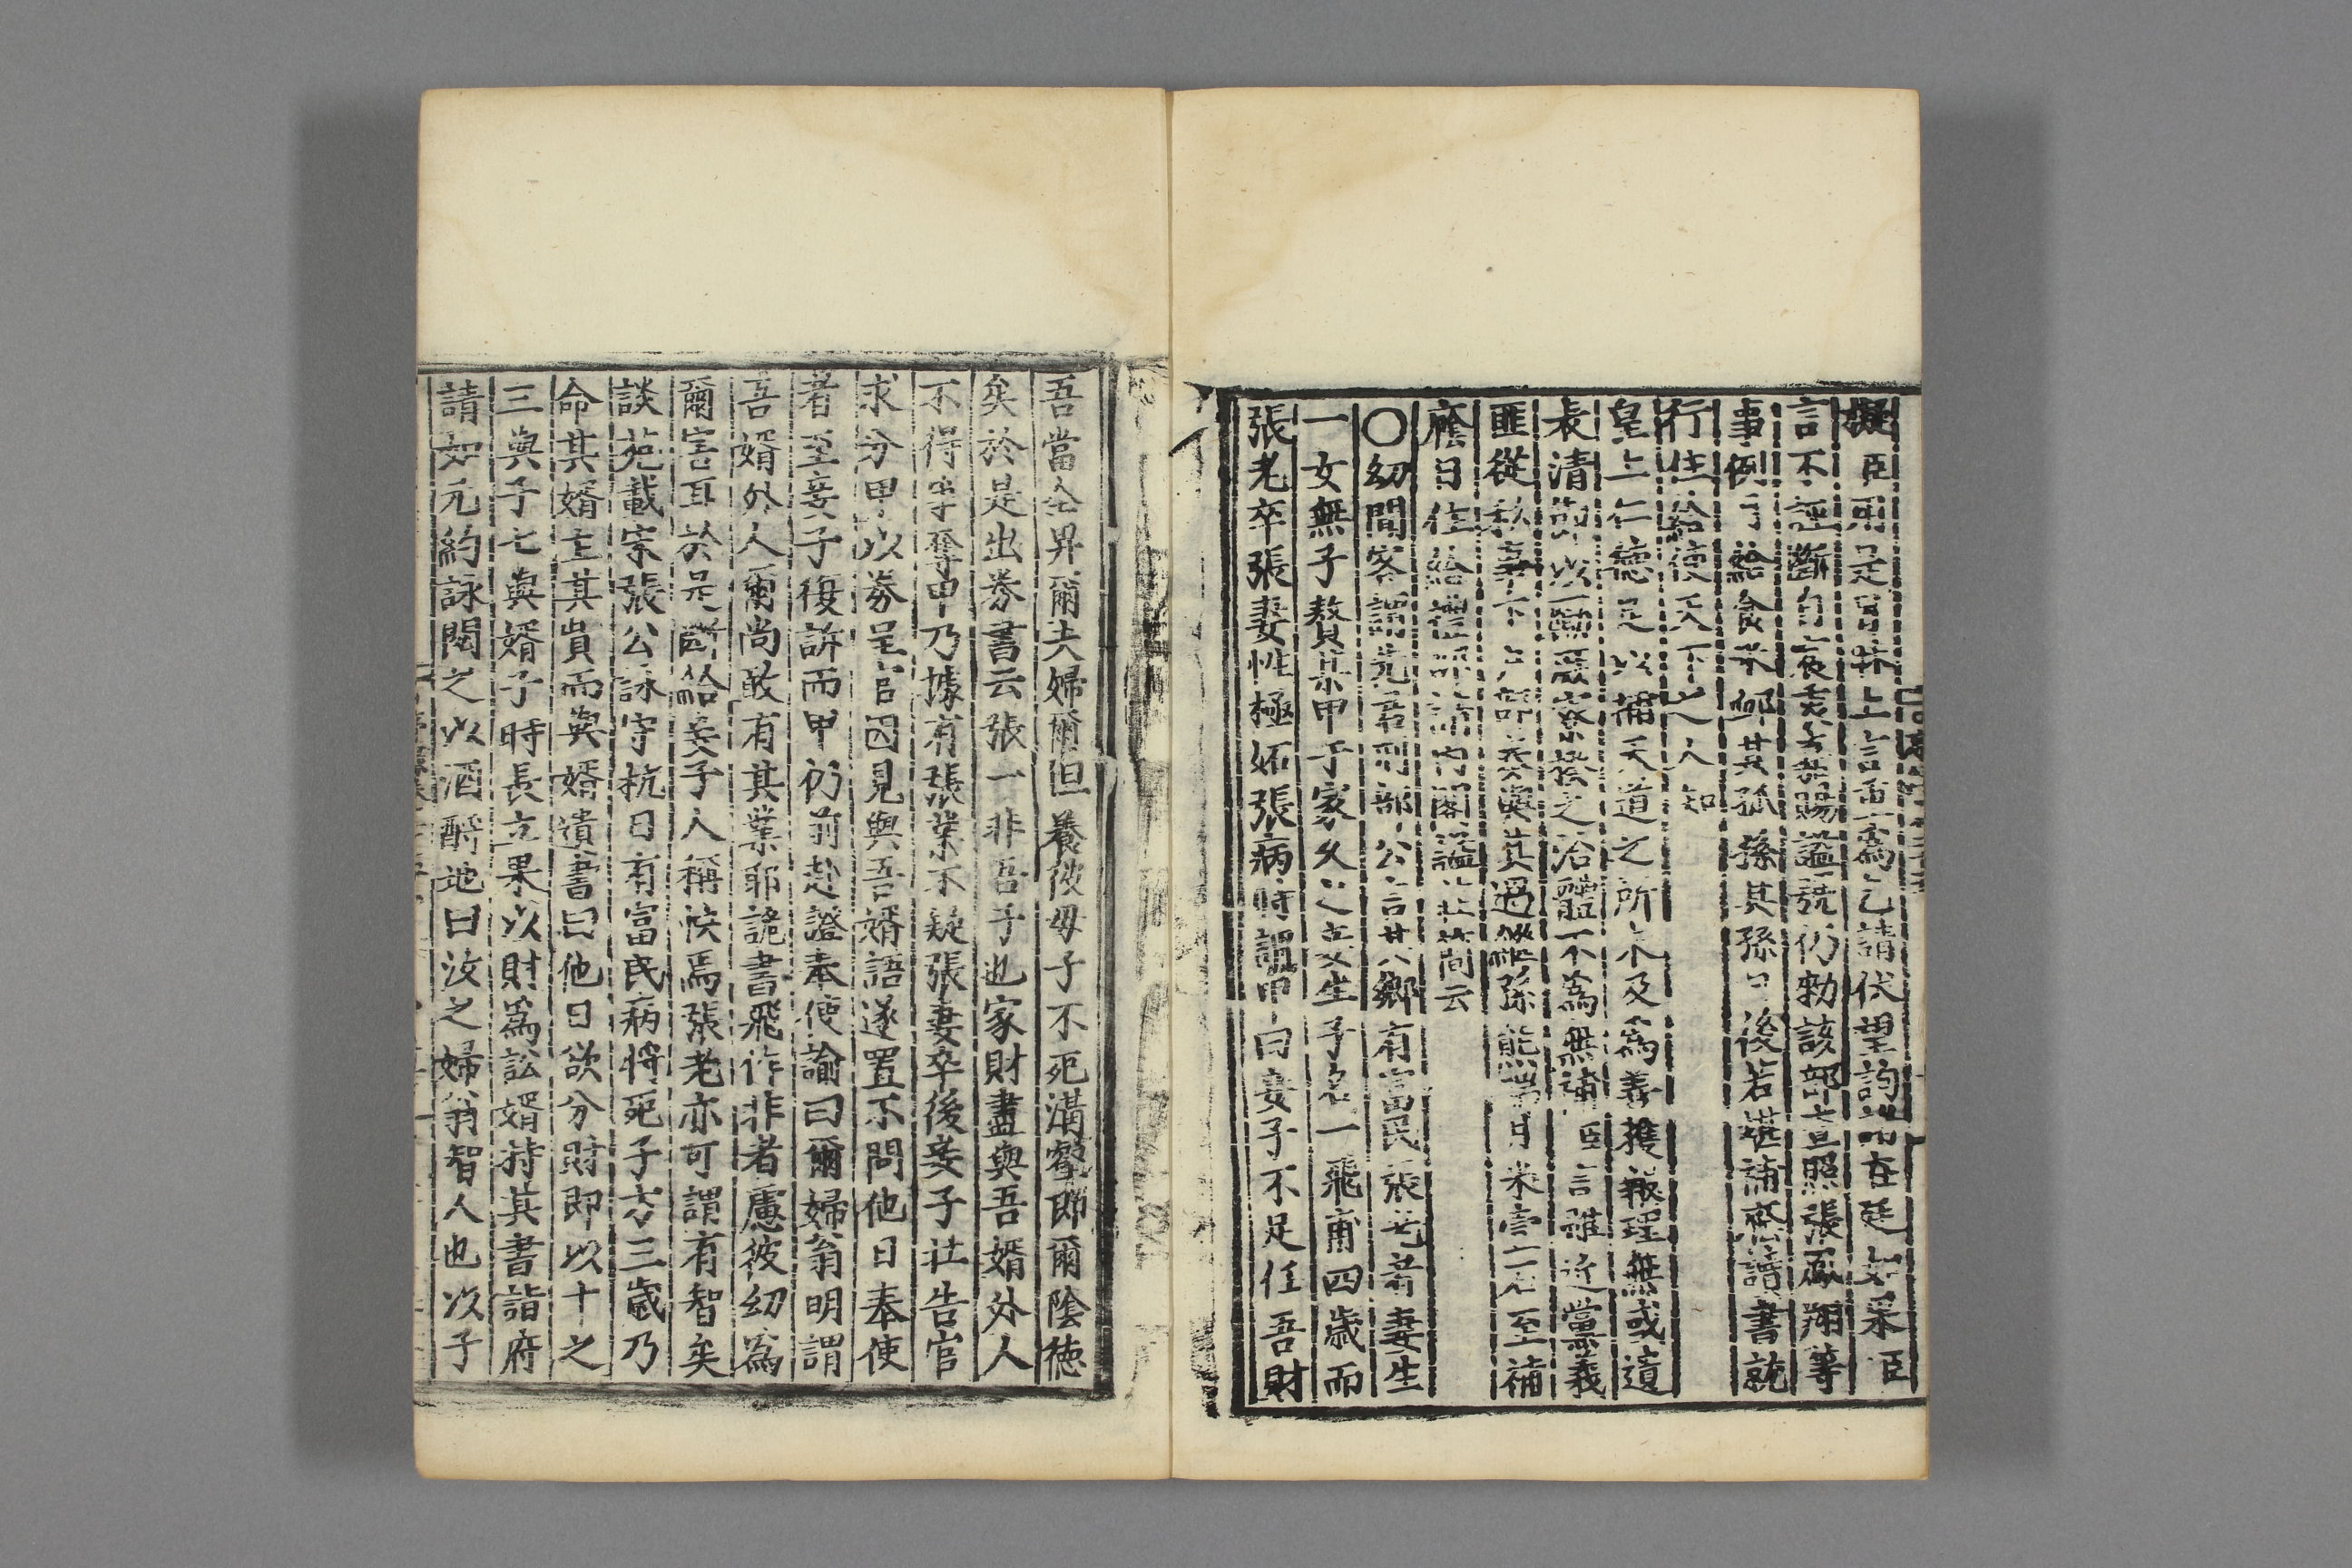 擬臣用是冒昧上言重為乞請伏望詢在廷如采臣
言不誣斷自宸衷去恭賜諡號仍勅該部查照張鳳翔等
事例月給食米卹其孤孫其孫日後若堪補廕讀書就
行住給使天下之人知
皇上仁德足以補天道之所不及為善獲報理無或遺
表清節以勵寮之治體不為無補臣言雖近黨義
匪從私事下戶部其過繼孫熊月米壹石至補
廕日住給禮部請內閣諡莊簡云
○幼聞客謂先君刑部公言其鄉有富民張老者妻生
一女無子贅某甲于家久之妾生子名一飛甫四歲而
張老卒張妻性極妬張病時謂甲曰妾子不足任吾財
吾當全畀爾夫婦爾但養彼母子不死溝壑即爾陰德
矣於是出券書云張一非吾子也家財盡與吾婿外人
不得爭奪甲乃據有張業不疑張妻卒後妾子壯告官
求分甲以券呈官因見與吾婿語遂置不問他日奉使
者至妾子復訴而甲仍前赴證奉使諭曰爾婦翁明謂
吾婿外人爾尚敢有其業耶詭書飛作非者慮彼幼為
爾害耳於是斷給妾子人稱快焉張老亦可謂有智矣
談苑載宗張公詠守杭日有富民病將死子方三歲乃
命其婿主其貲而與婿遺書曰他日欲分財即以十之
三與子七與婿子時長立果以財為訟婿持其書詣府
請如元約詠閱之以酒酹地曰汝之婦翁智人也以子